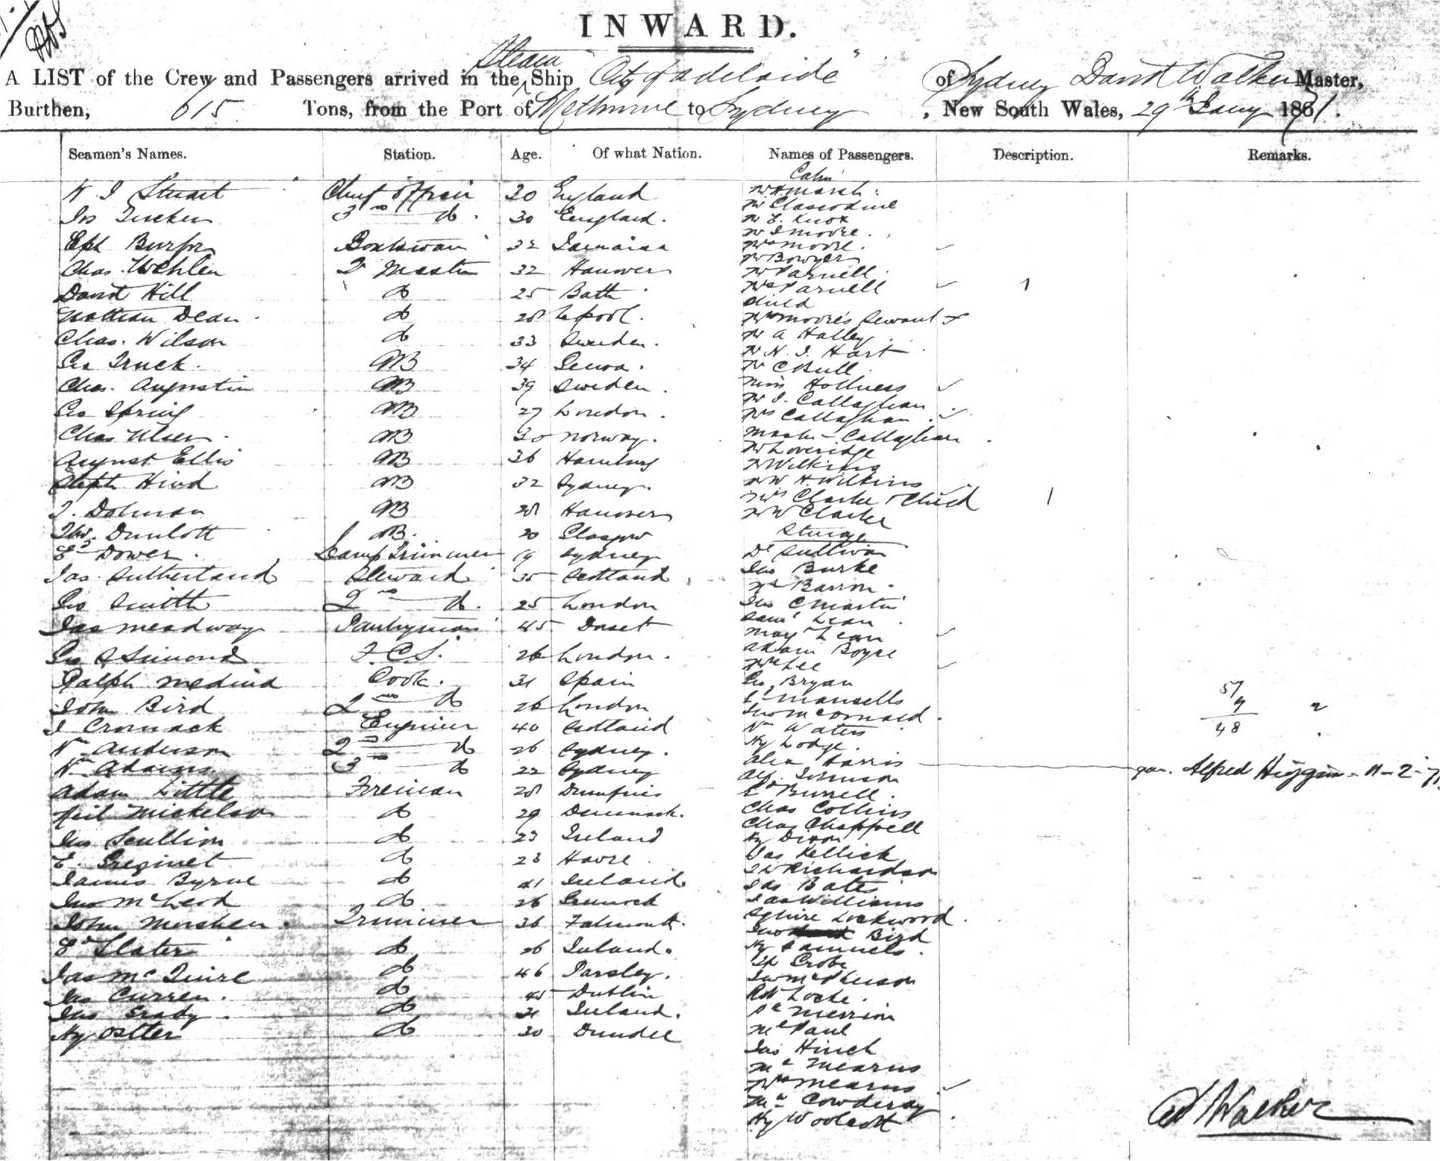 INWARD.
Steam
A LIST of the Crew and Passengers arrived in the Ship "City of Adelaide" of Sydney David Walker Master,
Burthen, 615 Tons, from the Port of Melbourne to Sydney, New South Wales, 29th Jany 1871.
Seamen's Names. Station. Age. Of what Nation. Names of Passengers. Description. Remarks.
Cabin
Stuart Chief Officer 30 England Marsh
Jas Tucker 3rd do. 30 England.
Mr E. Knox
Mr J Moore.
Burfor Boatswain 32 Jamaica Mrs Moore.
Mr Bowyer
Chas. Wehlen Master 32 Hanover Mr Parnell
David Hill do 25 Bath Mrs Parnell
Child
Nathan Dean do 28 L'pool. Mrs Moore's Servant
Chas. Wilson do 33 Sweden. Mr A Halley
Mr N. J. Hart
Geo Truck. AB 34 Genoa. Mr C Bull.
Chas. Augustin AB 39 Sweden. Miss Hollness
Mr J. Callaghan
Geo Spring AB 27 London. Mrs Callaghan
Chas Olsen. AB 30 Norway. Master Callaghan
Mr Loveridge
August Ellis AB 36 Hamburg Mr Wilkins
Steph Hind AB 32 Sydney. Mr W. H. Wilkins
Mrs Clarke & Child
J. Dohman AB 28 Hanover Mr W Clarke
Thos. Dunlott AB. 20 Glasgow Sturge
Ed Dower. Lamp Trimmer 19 Sydney D. Sullivan
Jas. Sutherland Steward 35 Scotland Jno Burke
Mr Barron.
Geo Smith 2nd do. 25 London Jno C Martin
Saml Lean
Jas Meadway Pantryman 45 Dorset May Lean
Adam Boyce
Geo S Simonds F.C.S. 26 London. Mrs Lee
Ralph Medina Cook. 31 Spain Geo Bryan
57
9
48
John Bird 2nd do 26 London Mansells
Jno McConnaid.
J Cromack Engineer 40 Scotland Wm Waters
Wm Anderson 2nd do 26 Sydney. Hy Lodge.
Wm Adams 3rd do 22 Sydney Alex Harris Alfred Higgins - 11-2-71
Adam Little Fireman 28 Dumfries Alf. Johnson
E Burrell.
Neil Mickelson do 29 Denmark. Chas Collins
Chas Chappell
Jas Scullion do 23 Ireland Hy Dixon
E. Greginet do 23 Havre. Jas Kellick
Richardson
James Byrne do 41 Ireland Jas Bates
Jno McLeod do 26 Greenock Jas Williams
John Meishen. Trimmer 36 Falmouth. Squire Lockwood
Jno Bird
Ed Slater do 26 Ireland. Hy Samuels.
Crobe
Jas McGuire do 46 Paisley. Jno McPherson
Jas Curren. do 45 Dublin Robt Locke.
Jas Grady. do 31 Ireland. Merrion
Hy Ostler do 30 Dundee Mc Paul
Jas Hinch
Mr Mearns
Mrs Mearns
Mr Cowderoy
Hy Woolcott
D Walker